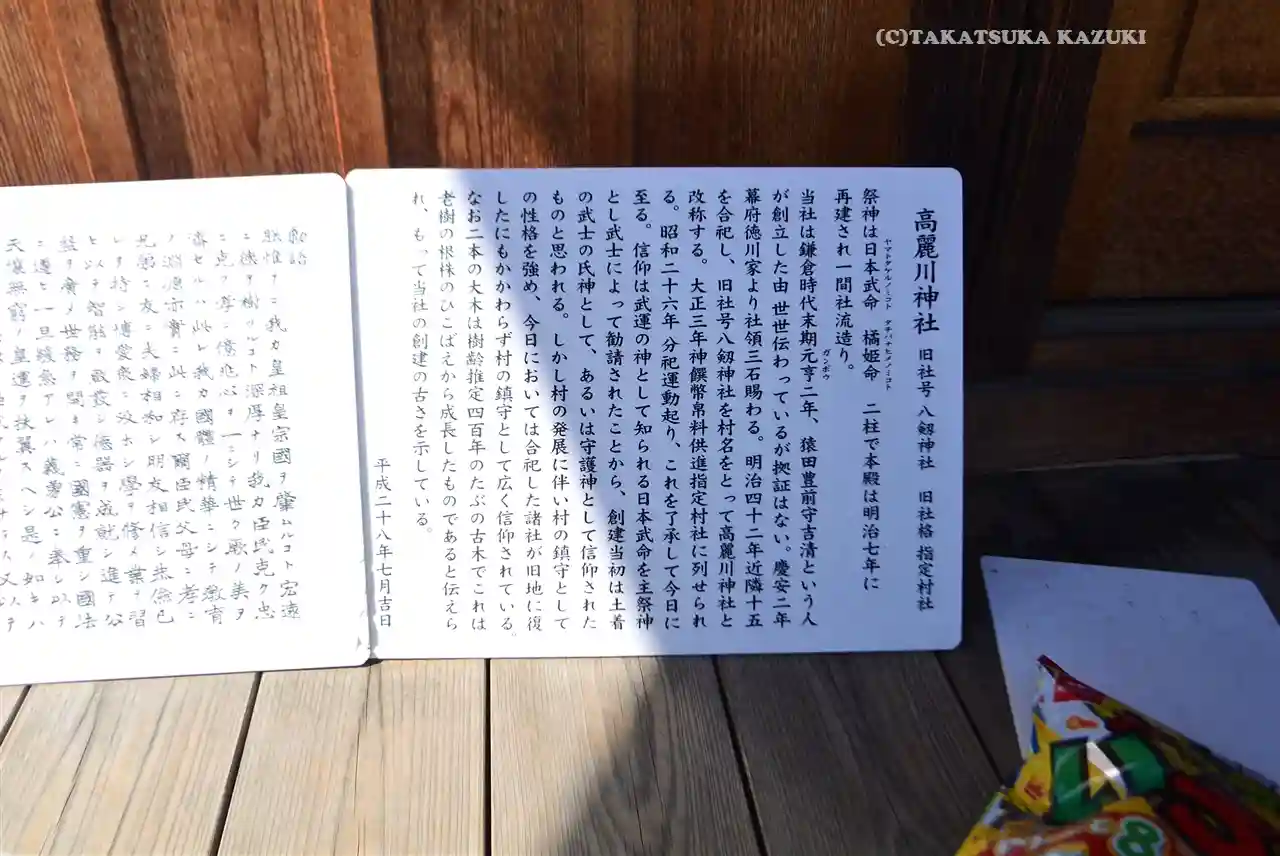 高麗川神社 旧社号 八剱神社 旧社格 指定村社
ヤマトタケルノミコト タチバナヒメノミコト
祭神は日本武命 橘姫命 二柱で本殿は明治七年に
再建され一間社流造り。
ガンボウ
当社は鎌倉時代末期元亨二年、猿田豊前守吉清という人
が創立した由 世世伝わっているが拠証はない。慶安二年
幕府徳川家より社領三石賜わる。明治四十二年近隣十五
を合祀し、旧社号八剱神社を村名をとって高麗川神社と
改称する。大正三年神饌幣帛料供進指定村社に列せられ
る。昭和二十六年 分祀運動起り、これを了承して今日に
至る。信仰は武運の神として知られる日本武命を主祭神
とし武士によって勧請されたことから、創建当初は土着
の武士の氏神として、あるいは守護神として信仰された
ものと思われる。しかし村の発展に伴い村の鎮守として
の性格を強め、今日においては合祀した諸社が旧地に復
したにもかかわらず村の鎮守として広く信仰されている。
なお二本の大木は樹齢推定四百年のたぶの古木でこれは
老樹の根株のひこばえから成長したものであると伝えら
れ、もって当社の創建の古さを示している。
平成二十八年七月吉日
勅語
朕惟フニ我カ皇祖皇宗國ヲ肇ムルコト宏遠
ニ德ヲ樹ツルコト深厚ナリ我カ臣民克ク忠
ニ克ク孝ニ億兆心ヲ一ニシテ世々厥ノ美ヲ
濟セルハ此レ我カ國體ノ精華ニシテ教育
ノ淵源亦實ニ此ニ存ス爾臣民父母ニ孝ニ
兄弟ニ友ニ夫婦相和シ朋友相信シ恭儉己
レヲ持シ博愛衆ニ及ホシ學ヲ修メ業ヲ習
ヒ以テ智能ヲ啓發シ德器ヲ成就シ進テ公
益ヲ廣メ世務ヲ開キ常ニ國憲ヲ重シ國法
ニ遵ヒ一旦緩急アレハ義勇公ニ奉シ以テ
天壤無窮ノ皇運ヲ扶翼スヘシ是ノ如キハ
(C)TAKATSUKA KAZUKI